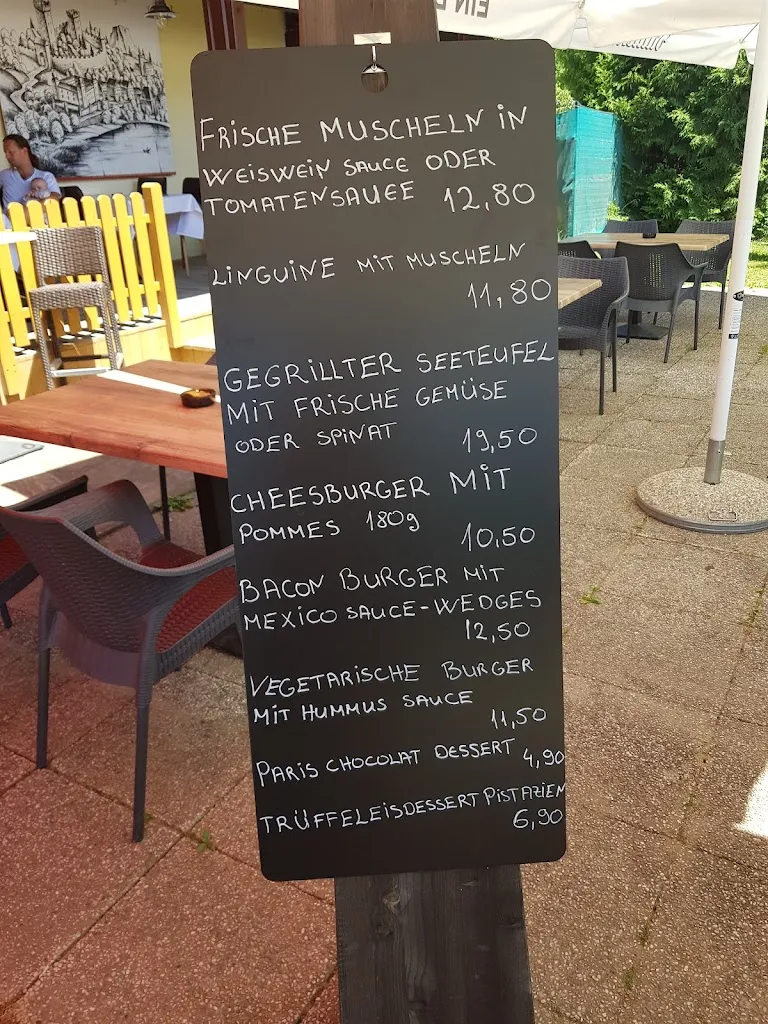 EIN
FRISCHE MUSCHELN IN
WEISWEIN SAUCE ODER
TOMATENSAUCE 12,80
LINGUINE MIT MUSCHELN
11,80
GEGRILLTER SEETEUFEL
MIT FRISCHE GEMÜSE
ODER SPINAT 19,50
CHEESBURGER MIT
POMMES 180g
10,50
BACON BURGER MIT
MEXICO SAUCE-WEDGES
12,50
VEGETARISCHE BURGER
MIT HUMMUS SAUCE
11,50
PARIS CHOCOLAT DESSERT 4,90
TRÜFFELEISDESSERT PISTAZIEN
6,90